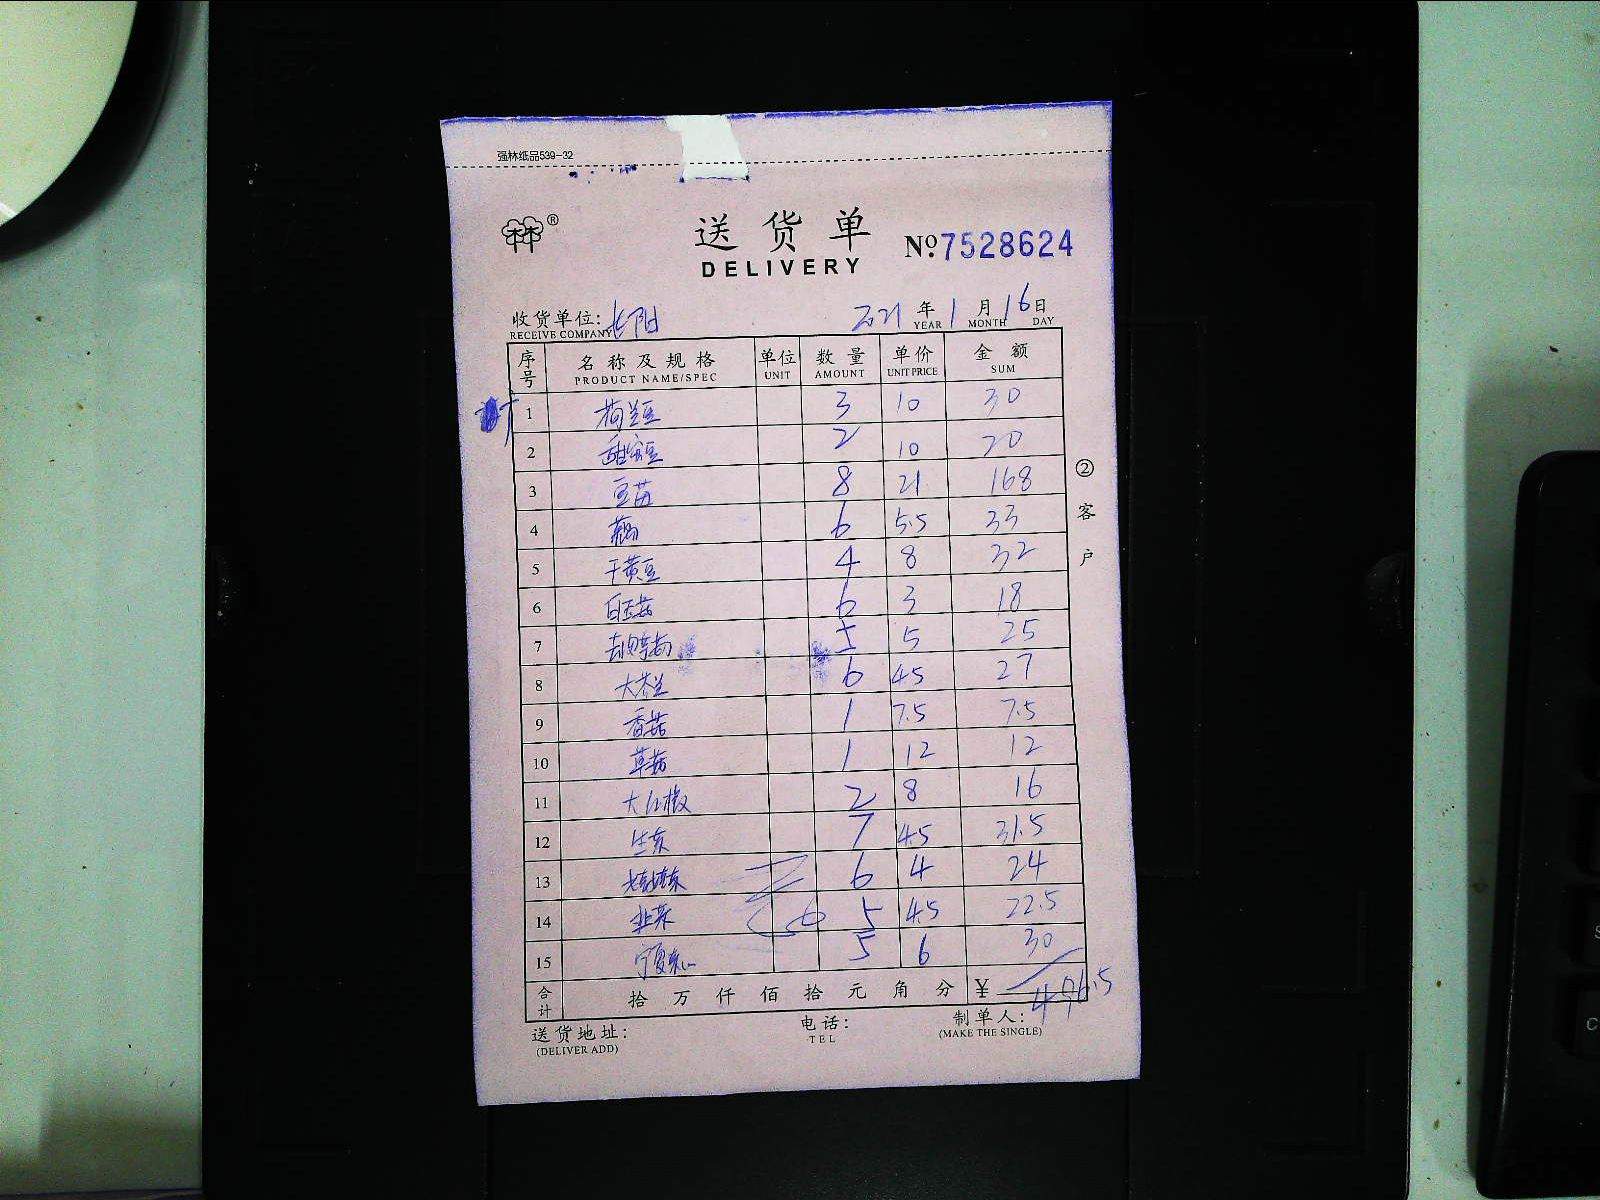 强林纸品539-32
®
送货单
DELIVERY
Nº 7528624
收货单位: 长阳 2021 年 1 月 16 日
RECEIVE COMPANY YEAR MONTH DAY
序号 名称及规格 单位 数量 单价 金额
PRODUCT NAME/SPEC UNIT AMOUNT UNIT PRICE SUM
1 荷兰豆 3 10 30
2 甜蜜豆 2 10 20
3 豆苗 8 21 168
4 6 5.5 33
5 干黄豆 4 8 32
6 白玉菇 6 3 18
7 5 5 25
8 大芥兰 6 4.5 27
9 香菇 1 7.5 7.5
10 草菇 1 12 12
11 大红椒 2 8 16
12 生菜 7 4.5 31.5
13 6 4 24
14 韭菜 5 4.5 22.5
15 宁夏菜心 5 6 30
合计 拾 万 仟 佰 拾 元 角 分 ¥ 496.5
送货地址: 电话: 制单人:
(DELIVER ADD) TEL (MAKE THE SINGLE)
② 客户